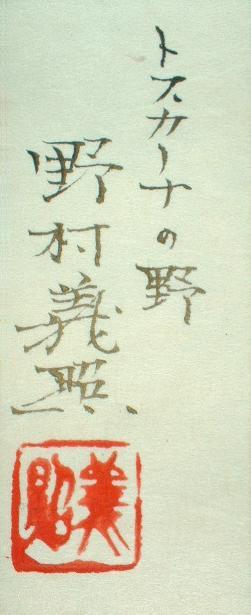 トスカーナの野
野村義照
義照